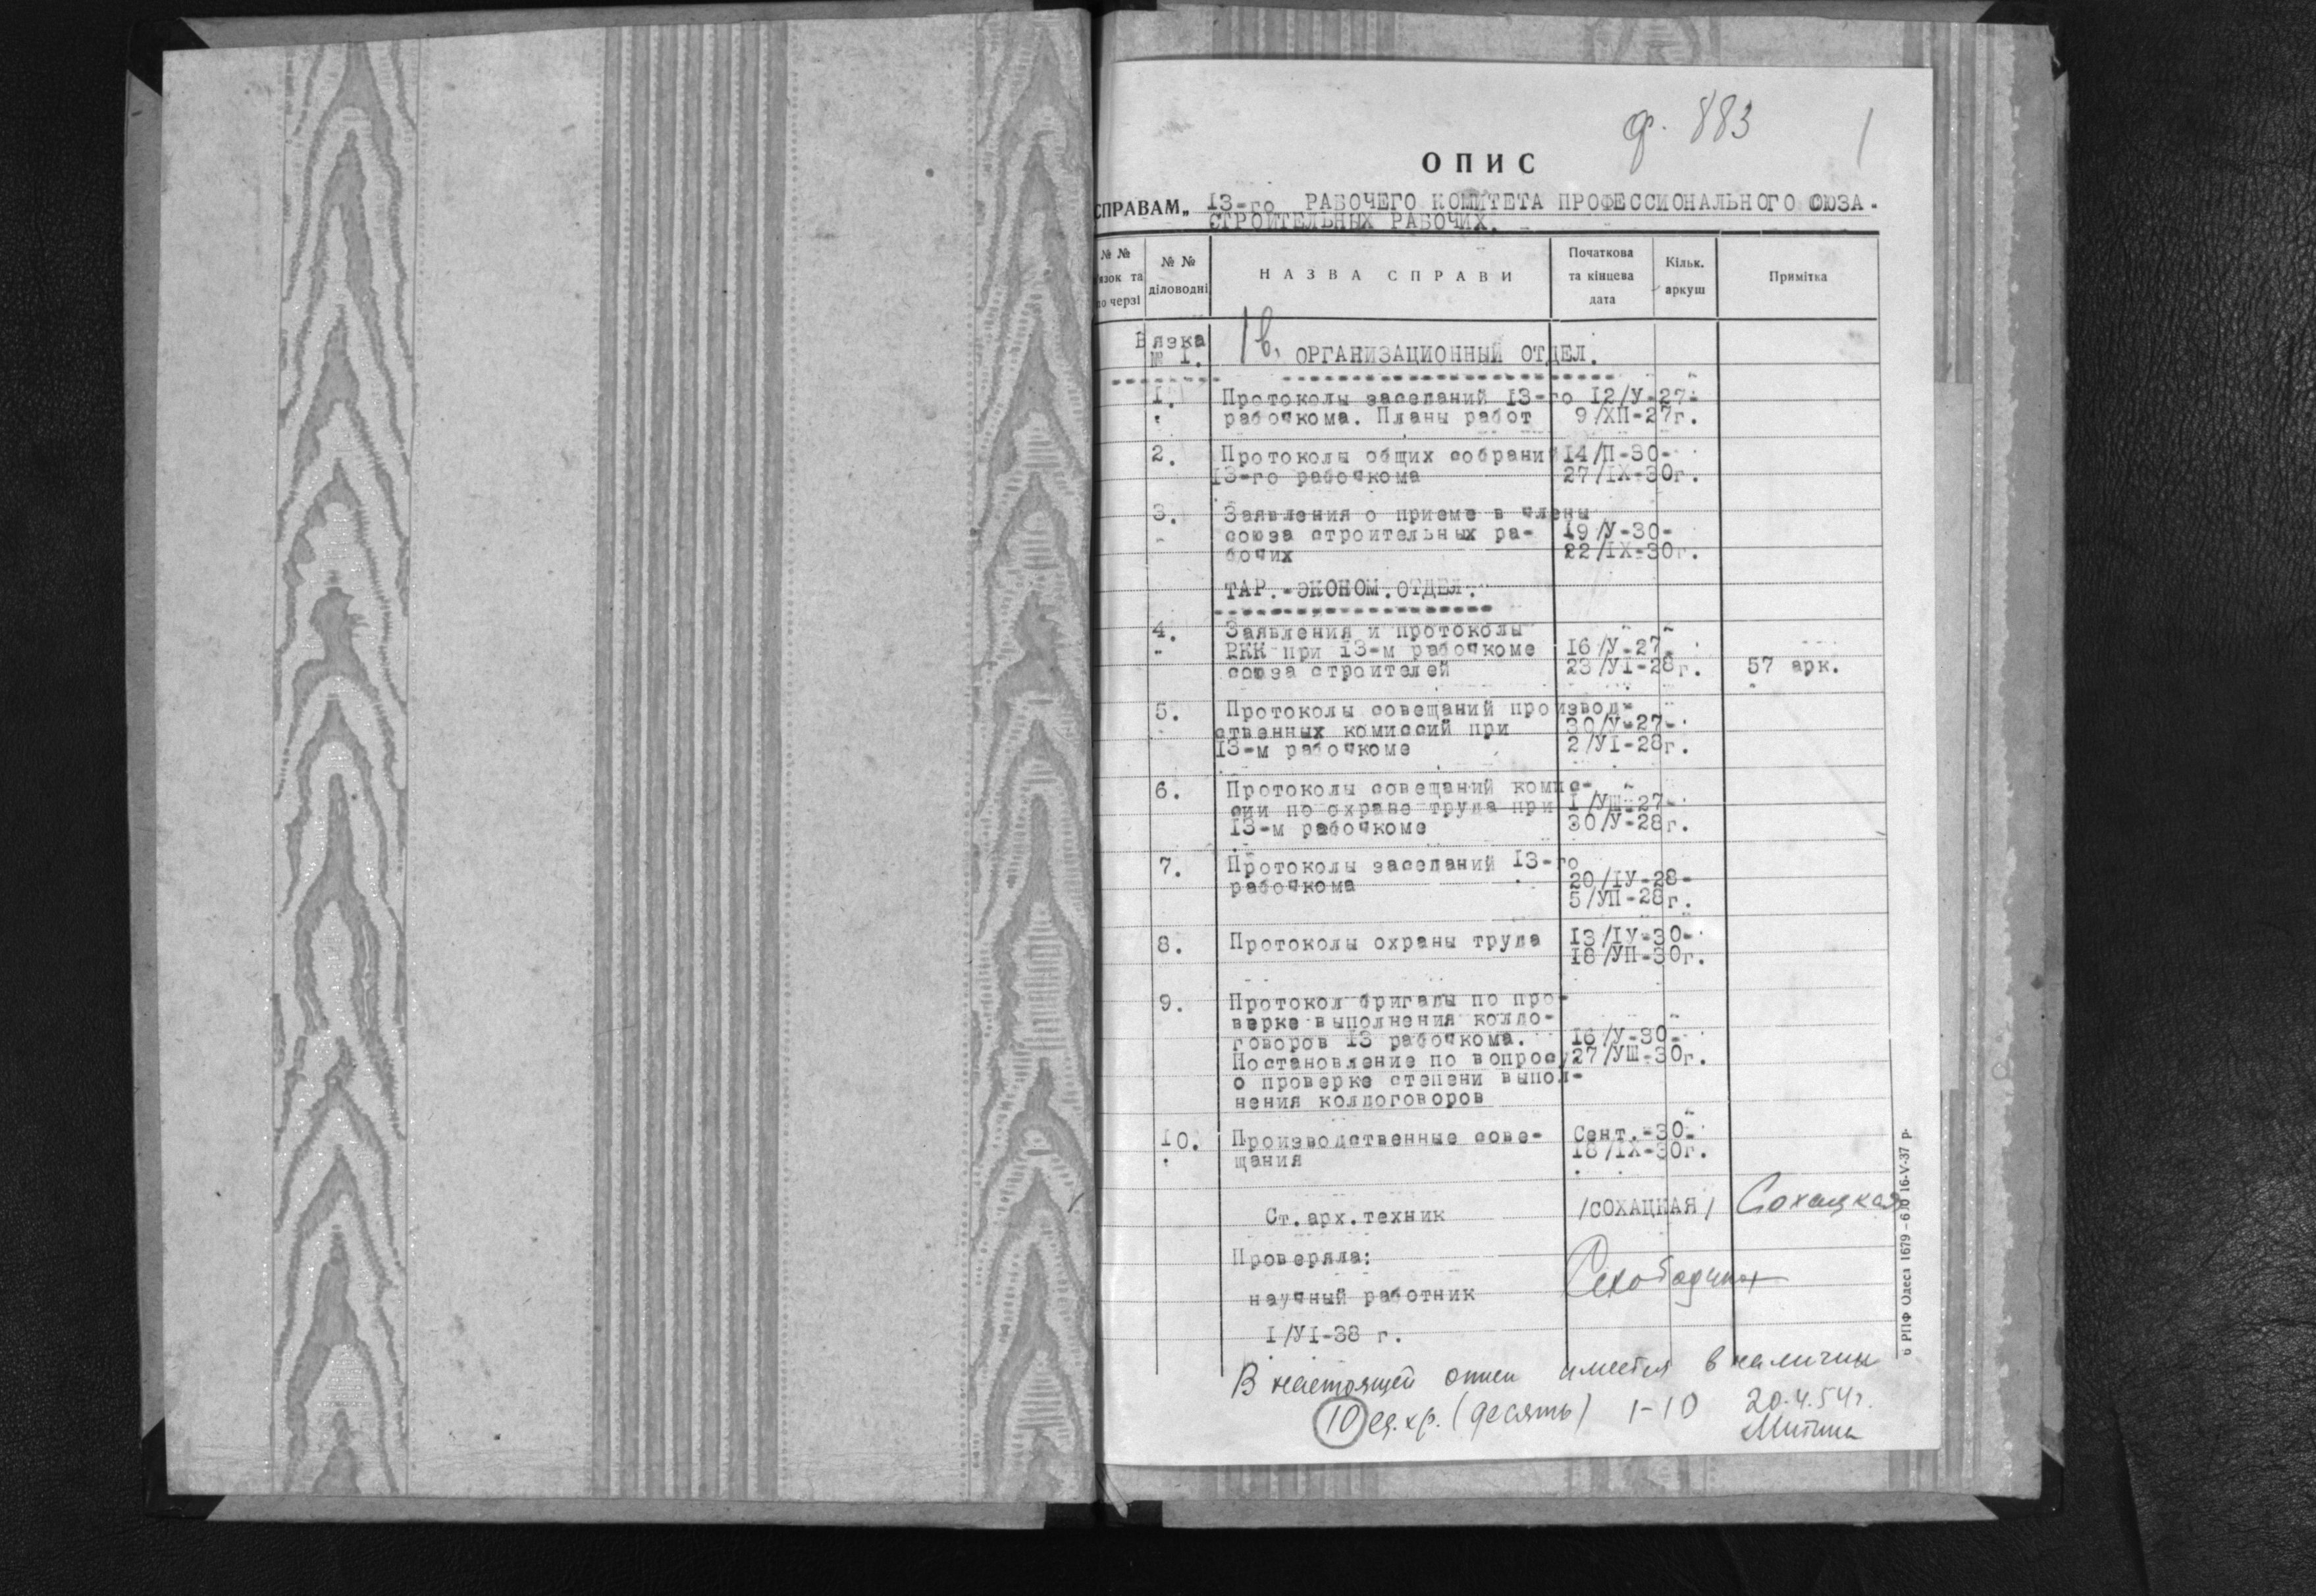 ф. 883
1
ОПИС
СПРАВАМ „ 13-го РАБОЧЕГО КОМИТЕТА ПРОФЕССИОНАЛЬНОГО СОЮЗА
СТРОИТЕЛЬНЫХ РАБОЧИХ.
№ № язок та по черзі
№ № діловодні
НАЗВА СПРАВИ
Початкова та кінцева дата
Кільк. аркуш
Примітка
Вязка № 1.
1 в. ОРГАНИЗАЦИОННЫЙ ОТДЕЛ.
1. Протоколы заседаний 13-го 12/У-27-
рабочкома. Планы работ 9/ХП-27г.
2. Протоколы общих собраний 14/П-30-
13-го рабочкома 27/IХ-30г.
3. Заявления о приеме в члены
союза строительных ра- 19/У-30-
бочих 22/IХ-30г.
ТАР.-ЭКОНОМ.ОТДЕЛ.
4. Заявления и протоколы
РКК при 13-м рабочкоме 16/У-27-
союза строителей 23/УI-28г. 57 арк.
5. Протоколы совещаний производ-
ственных комиссий при 30/У-27-
13-м рабочкоме 2/УI-28г.
6. Протоколы совещаний комис-
сии по охране труда при 1/УШ-27-
13-м рабочкоме 30/У-28г.
7. Протоколы заседаний 13-го
рабочкома 20/IУ-28-
5/УП-28г.
8. Протоколы охраны труда 13/IУ-30-
18/УП-30г.
9. Протокол бригады по про-
верке выполнения колдо-
говоров 13 рабочкома. 16/У-30-
Постановление по вопросу 27/УШ-30г.
о проверке степени выпол-
нения колдоговоров
10. Производственные сове- Сент.-30-
щания 18/IХ-30г.
Ст.арх.техник /СОХАЦКАЯ/ Сохацкая
Проверяла:
научный работник
1/УI-38 г.
В настоящей описи имеется в наличии
10 ед.хр. (десять) 1-10 20.4.54г.
РПФ Одеса 1679 – 610 16-V-37 р.